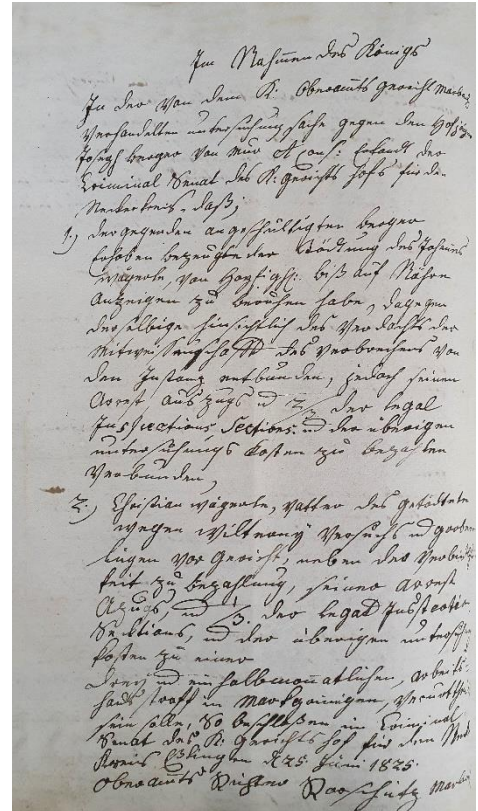 Im Nahmen des Königs
In der von dem K: Oberamts Gericht Marbach
Verhandelten untersuchungs sache gegen den
Joseph berger von Mur et Cons: Erkandt der
Kriminal Senat des K: gerichts hofs für de-
Neckerkreis. daß;
1.) der gegen den angeschultigten berger
Erhoben bezeugte der Tödtung des Johannes
wägerle, von biß auf Nähre
Anzeigen zu beruhen habe, dagegen
derselbige hinsichtlich des Verdachts der
Mitwissenschafft des Verbrechens von
der Instanz entbunden, jedoch seinen
Arrest Auszugs und 2/3 der legal
Inspections Sections und der übrigen
untersuchungs kosten zu bezahlen
Verbunden,
2.) Christian wägerle, vatter des getödteten
wegen Versuchs und
lügen vor Gericht, neben der Verbind
keit zu bezahlung, seiner Arrest
Azugs, und 1/3. der legal Inspections
Secktions, und der übrigen untersuchs
kosten zu einer
Drey und ein halbmonatlichen, arbeits-
haus straff in Markgröningen, verurtheilt
sein solle, So beschloßen im Kriminal
Senat des K: Gerichts hof für den Neck
Kreis Eßlingen d 25 Juni 1825.
Oberamts Richter Rooschütz Marbach